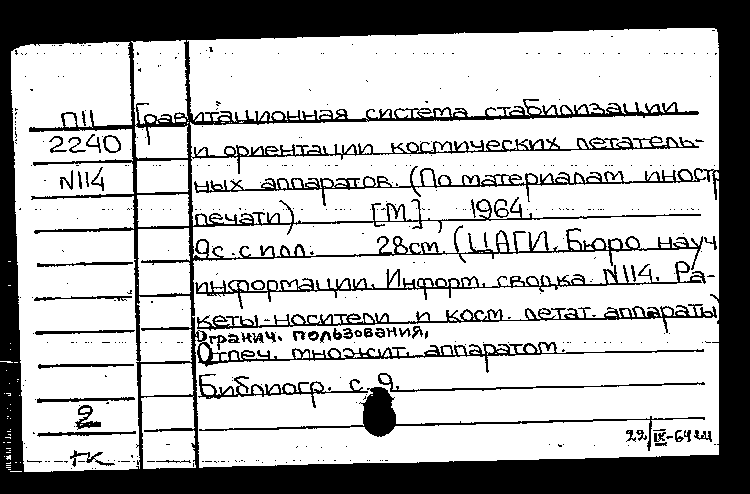 П11 Гравитационная система стабилизации
2240 и ориентации космических летатель-
N114 ных аппаратов. (По материалам иностр
печати). [М.], 1964.
9с. с илл. 28см. (ЦАГИ. Бюро науч
информации. Информ. сводка N114. Ра-
кеты-носители и косм. летат. аппараты)
Огранич. пользования,
Отпеч. множит. аппаратом.
Библиогр. с. 9.
2
22/IX-64
гк